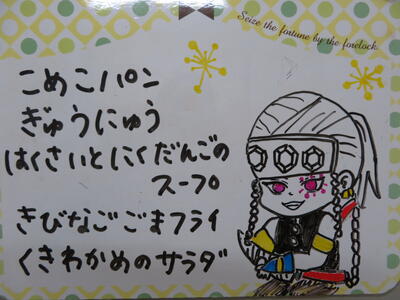 Seize the fortune by the forelock.
こめこパン
ぎゅうにゅう
はくさいとにくだんごの
スープ
きびなごごまフライ
くきわかめのサラダ